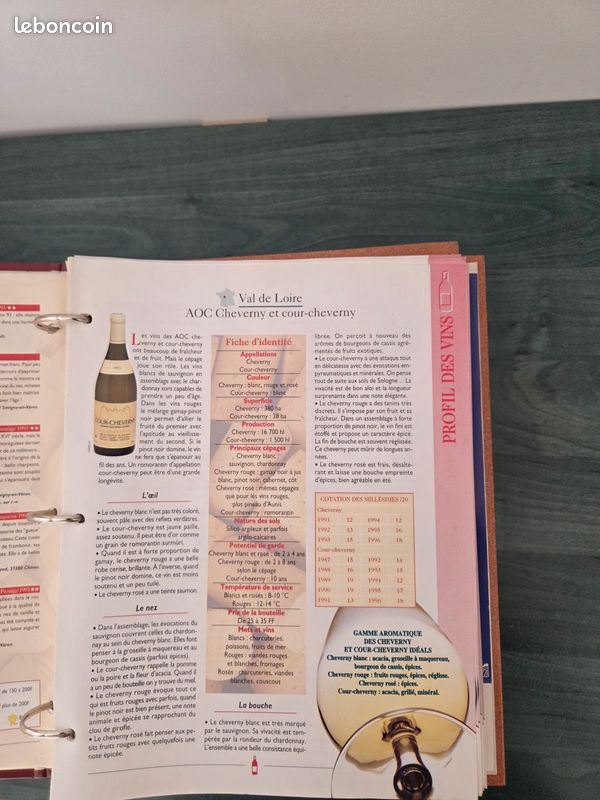 leboncoin
Val de Loire
AOC Cheverny et cour-cheverny
Les vins des AOC che-
verny et cour-cheverny
ont beaucoup de fraîcheur
et de fruit. Mais le cépage
joue son rôle. Les vins
blancs de sauvignon en
assemblage avec le char-
donnay sont capables de
prendre un peu d'âge.
Dans les vins rouges
le mélange gamay-pinot
noir permet d'allier le
fruité du premier avec
l'aptitude au vieillisse-
ment du second. Si le
pinot noir domine, le vin
ne fera que s'épanouir au
fil des ans. Un romorantin d'appellation
cour-cheverny peut être d'une grande
longévité.
L'œil
• Le cheverny blanc n'est pas très coloré,
souvent pâle avec des reflets verdâtres.
• Le cour-cheverny est jaune paille,
assez soutenu. Il peut être d'or comme
un grain de romorantin surmûri.
• Quand il est à forte proportion de
gamay, le cheverny rouge a une belle
robe cerise, brillante. À l'inverse, quand
le pinot noir domine, ce vin est moins
soutenu et un peu tuilé.
• Le cheverny rosé a une teinte saumon.
Le nez
• Dans l'assemblage, les évocations du
sauvignon couvrent celles du chardon-
nay au sein du cheverny blanc. Elles font
penser à la groseille à maquereau et au
bourgeon de cassis (parfois épices).
• Le cour-cheverny rappelle la pomme
ou la poire et la fleur d'acacia. Quand il
a un peu de bouteille on y trouve du miel.
• Le cheverny rouge évoque tout ce
qui est fruits rouges avec parfois, quand
le pinot noir est bien présent, une note
animale et épicée se rapprochant du
clou de girofle.
• Le cheverny rosé fait penser aux pe-
tits fruits rouges avec quelquefois une
note épicée.
Fiche d'identité
Appellations
Cheverny
Cour-cheverny
Couleur
Cheverny : blanc, rouge et rosé
Cour-cheverny : blanc
Superficie
Cheverny : 380 ha
Cour-cheverny : 38 ha
Production
Cheverny : 16 700 hl
Cour-cheverny : 1 500 hl
Principaux cépages
Cheverny blanc :
sauvignon, chardonnay
Cheverny rouge : gamay noir à jus
blanc, pinot noir, cabernet, côt
Cheverny rosé : mêmes cépages
que pour les vins rouges,
plus pineau d'Aunis
Cour-cheverny : romorantin
Nature des sols
Silico-argileux et parfois
argilo-calcaires
Potentiel de garde
Cheverny blanc et rosé : de 2 à 4 ans
Cheverny rouge : de 2 à 8 ans
selon le cépage
Cour-cheverny : 10 ans
Température de service
Blancs et rosés : 8-10 °C
Rouges : 12-14 °C
Prix de la bouteille
De 25 à 35 FF
Mets et vins
Blancs : charcuteries,
poissons, fruits de mer
Rouges : viandes rouges
et blanches, fromages
Rosés : charcuteries, viandes
blanches, couscous
La bouche
• Le cheverny blanc est très marqué
par le sauvignon. Sa vivacité est tem-
pérée par la rondeur du chardonnay.
L'ensemble a une belle consistance équi-
librée. On perçoit à nouveau des
arômes de bourgeons de cassis agré-
mentés de fruits exotiques.
• Le cour-cheverny a une attaque tout
en délicatesse avec des évocations em-
pyreumatiques et minérales. On pense
tout de suite aux sols de Sologne... La
vivacité est de bon aloi et la longueur
surprenante dans une note élégante.
• Le cheverny rouge a des tanins très
discrets. Il s'impose par son fruit et sa
fraîcheur. Dans un assemblage à forte
proportion de pinot noir, le vin fini est
étoffé et propose un caractère épicé.
La fin de bouche est souvent réglissée.
Ce cheverny peut mûrir de longues an-
nées.
• Le cheverny rosé est frais, désalté-
rant et laisse une bouche empreinte
d'épices, bien agréable en été.
COTATION DES MILLÉSIMES /20
Cheverny
1991 12 1994 12
1992 13 1995 16
1993 15 1996 18
Cour-cheverny
1987 15 1992 14
1988 16 1993 15
1989 19 1994 12
1990 19 1995 17
1991 13 1996 18
GAMME AROMATIQUE
DES CHEVERNY
ET COUR-CHEVERNY IDÉALS
Cheverny blanc : acacia, groseille à maquereau,
bourgeon de cassis, épices.
Cheverny rouge : fruits rouges, épices, réglisse.
Cheverny rosé : épices.
Cour-cheverny : acacia, grillé, minéral.
PROFIL DES VINS
COUR-CHEVERNY